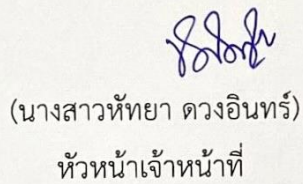 (นางสาวหัทยา ดวงอินทร์)
หัวหน้าเจ้าหน้าที่